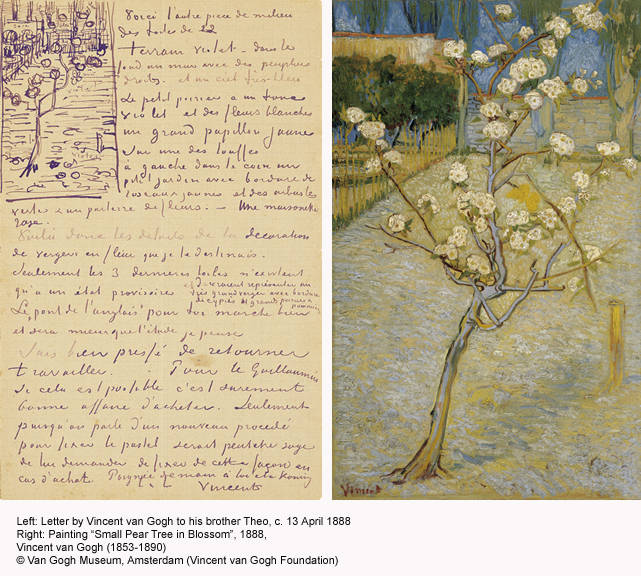 Voici l'autre pièce de milieu
des toiles de 12
terrain violet – dans le
fond un mur avec des peupliers
droits et un ciel très bleu
Le petit poirier a un tronc
violet et des fleurs blanches
un grand papillon jaune
sur une des touffes
à gauche dans le coin un
petit jardin avec bordure de
roseaux jaunes et des arbustes
verts & un parterre de fleurs. – Une maisonette
rose.
Voilà donc les détails de la décoration
de vergers en fleur que je te destinais.
Seulement les 3 dernières toiles n'existent
qu'à un état provisoire et devraient représenter un
très grand verger avec bordure
de cyprès et grands poiriers &
pommiers
Le "pont de l'anglais" pour toi marche bien
et sera mieux que l'étude je pense
Suis bien pressé de retourner
travailler. Pour le Guillaumin
si cela est possible c'est surement
bonne affaire d'acheter. Seulement
puisqu'on parle d'un nouveau procédé
pour fixer le pastel serait peutetre sage
de lui demander de fixer de cette façon en
cas d'achat. Poignée de main à toi et à Koning
Vincent
violet
Vincent
Left: Letter by Vincent van Gogh to his brother Theo, c. 13 April 1888
Right: Painting “Small Pear Tree in Blossom”, 1888,
Vincent van Gogh (1853-1890)
© Van Gogh Museum, Amsterdam (Vincent van Gogh Foundation)